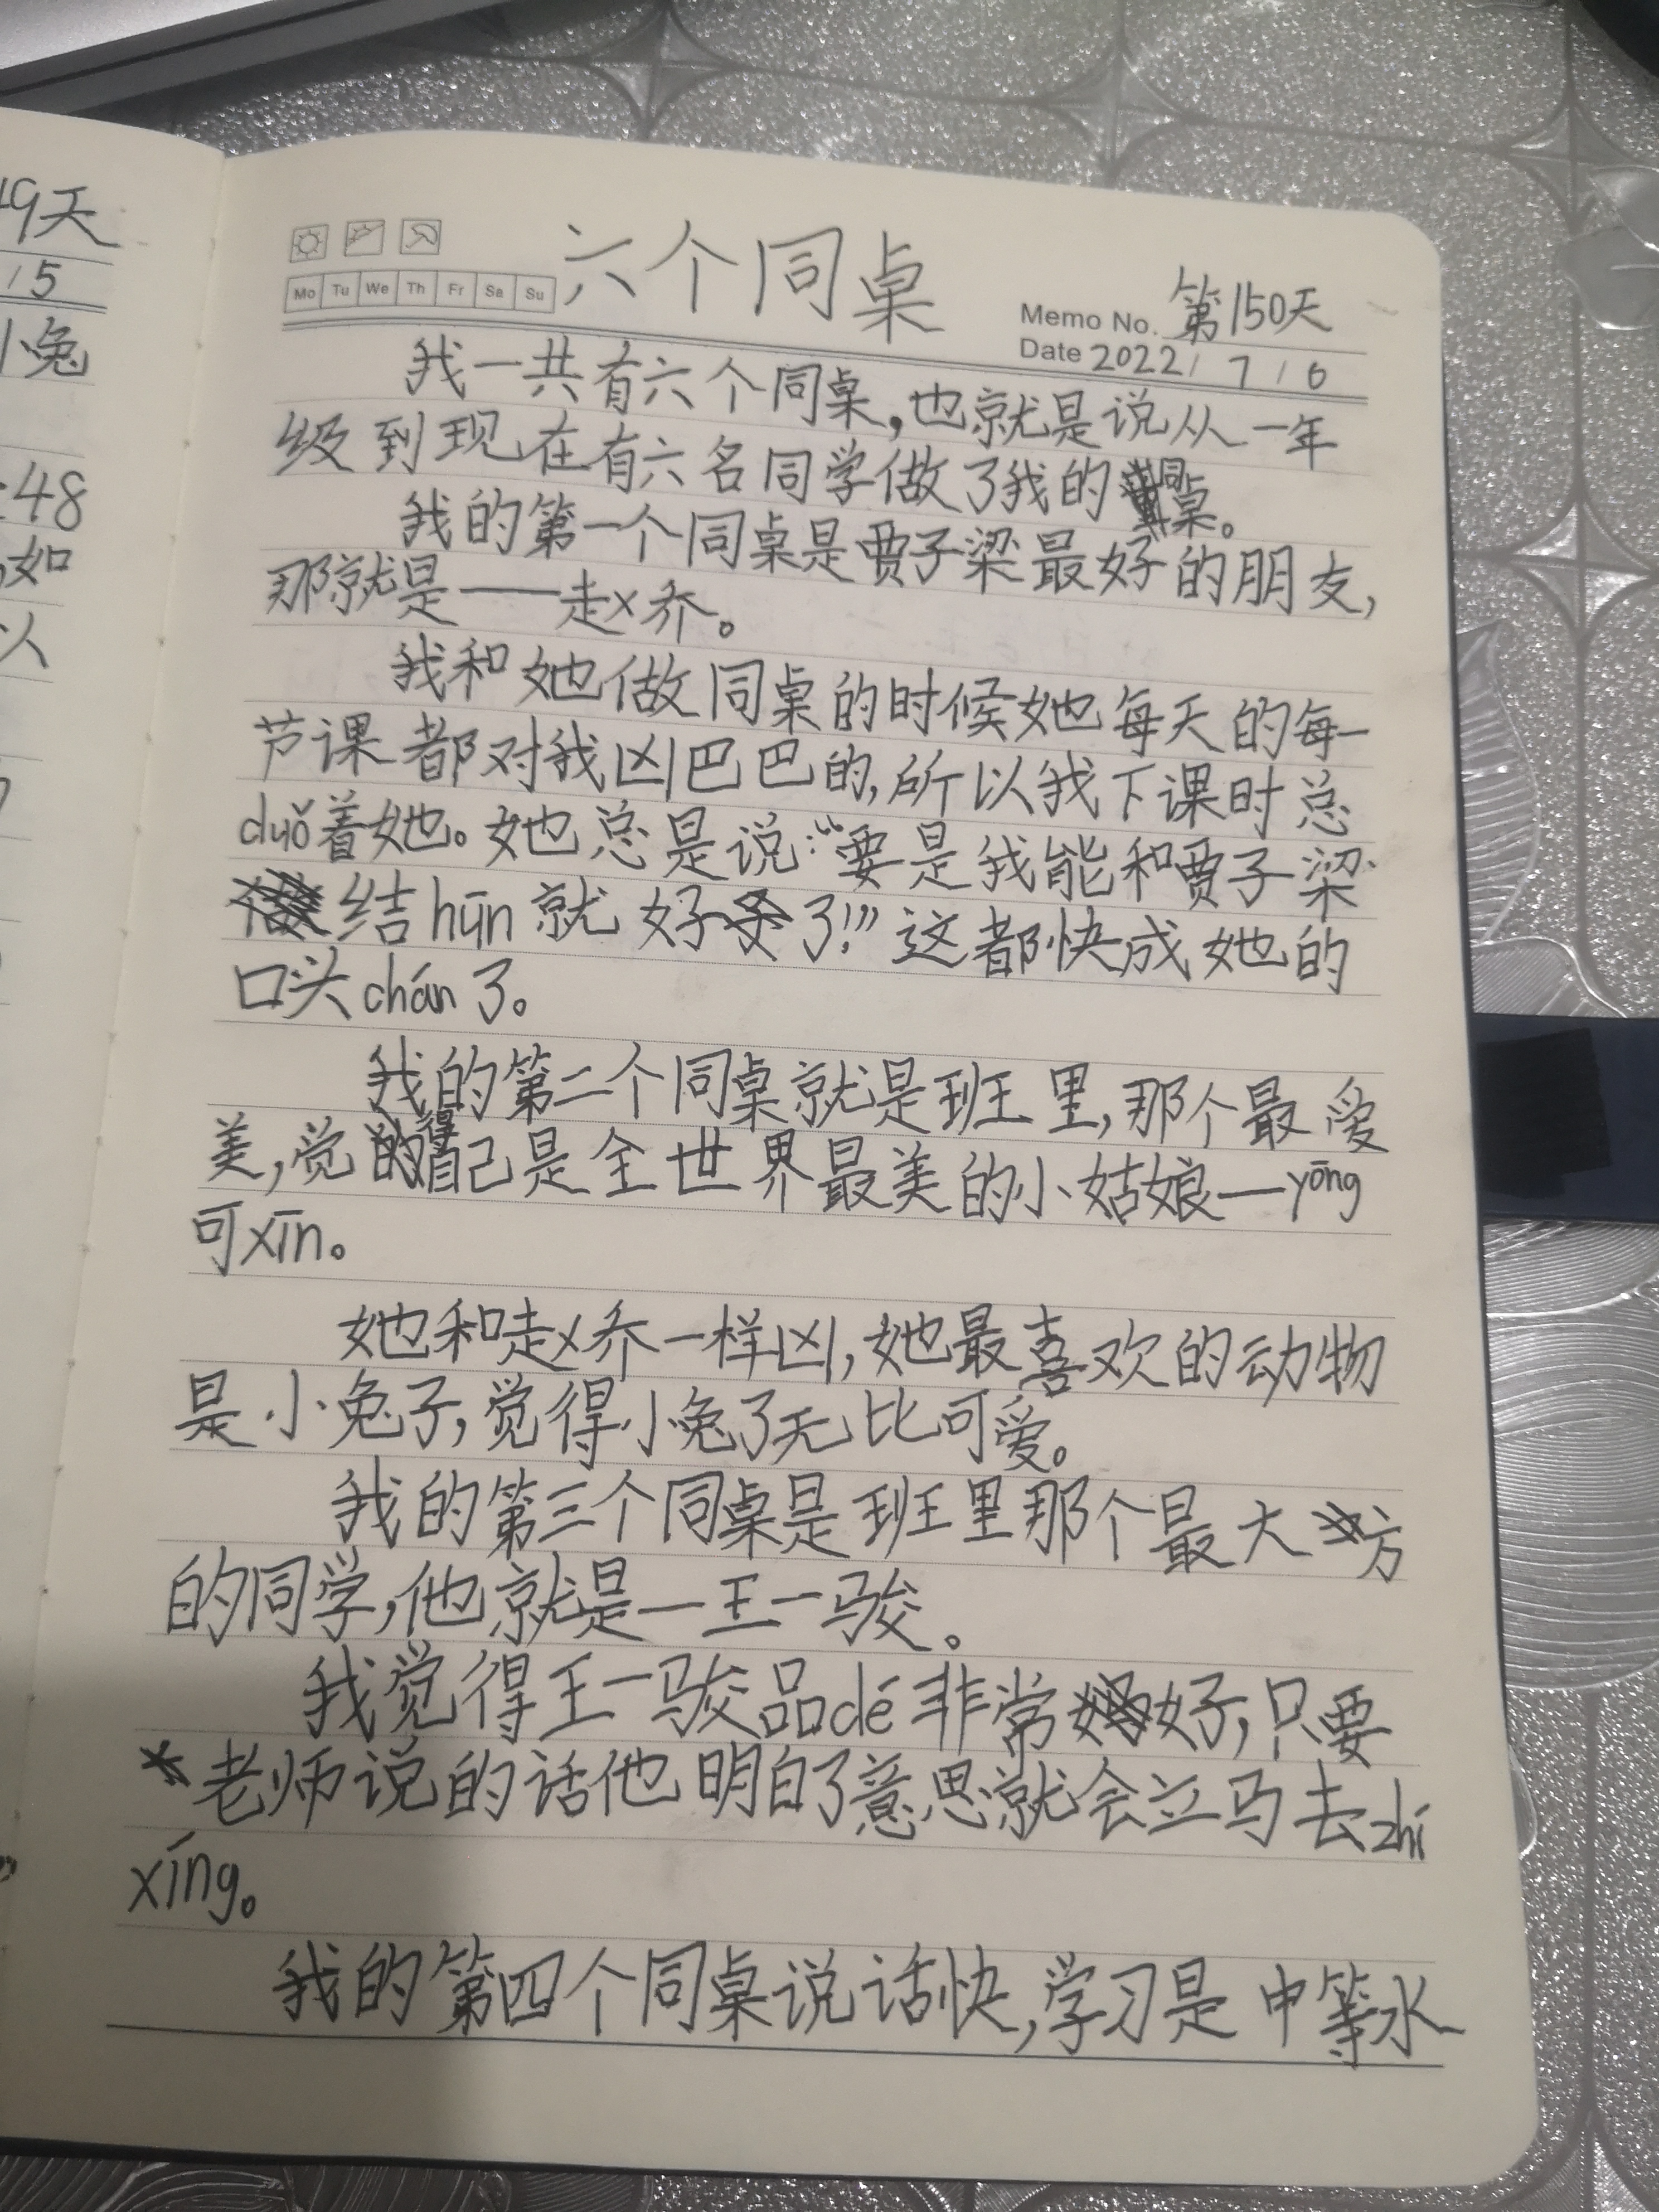 49天
15
小兔
:48
如
人
六个同桌
Mo Tu We Th Fr Sa Su
Memo No. 第150天
Date 2022/7/6
我一共有六个同桌,也就是说从一年
级到现在有六名同学做了我的同桌。
我的第一个同桌是贾子梁最好的朋友,
那就是——赵乔。
我和她做同桌的时候她每天的每一
节课都对我凶巴巴的,所以我下课时总
duǒ着她。她总是说:“要是我能和贾子梁
结hūn就好了!”这都快成她的
口头chán了。
我的第二个同桌就是班里,那个最爱
美,觉得自己是全世界最美的小姑娘—yōng
可xīn。
她和赵乔一样凶,她最喜欢的动物
是小兔子,觉得小兔了无比可爱。
我的第三个同桌是班里那个最大方
的同学,他就是—王一骏。
我觉得王一骏品dé非常好,只要
老师说的话他明白了意思就会立马去zhí
xíng。
我的第四个同桌说话快,学习是中等水